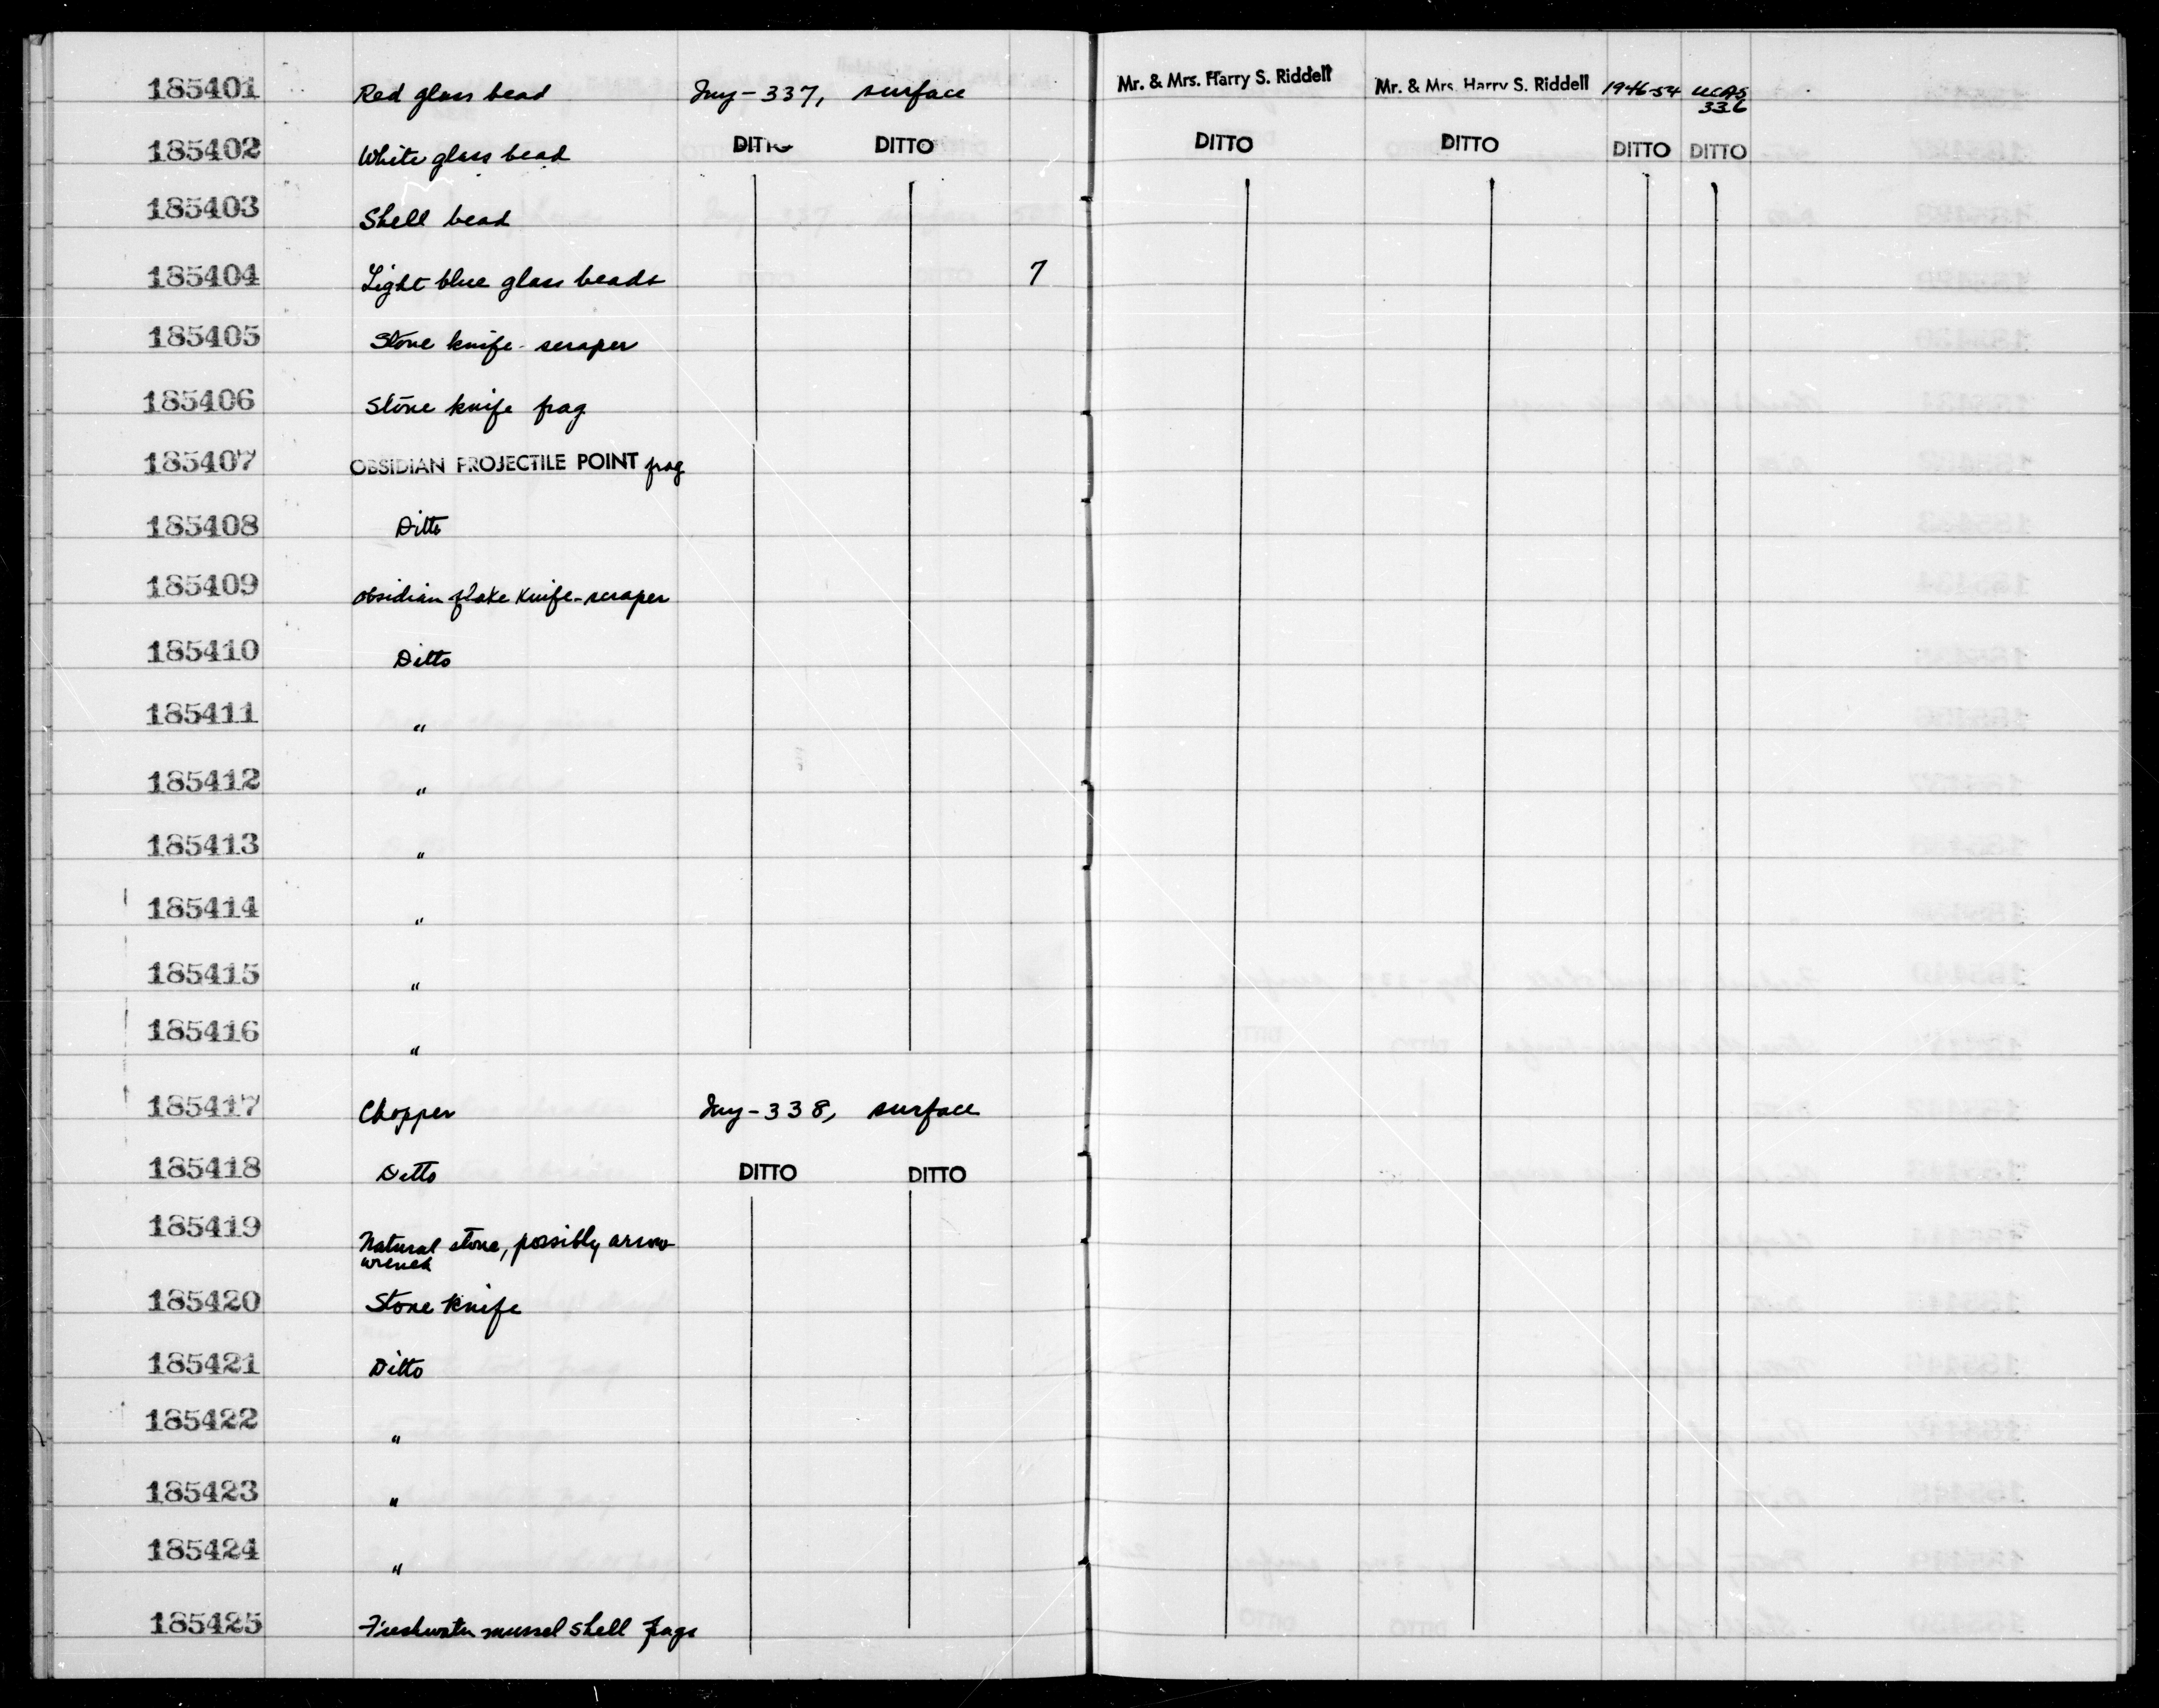 185401 Red glass bead Iny-337, surface Mr. & Mrs. Harry S. Riddell Mr. & Mrs. Harry S. Riddell 1946-54 UCAS
336
185402 White glass bead DITTO DITTO DITTO DITTO DITTO DITTO
185403 Shell bead
185404 Light blue glass beads 7
185405 Stone knife-scraper
185406 Stone knife frag
185407 OBSIDIAN PROJECTILE POINT frag
185408 Ditto
185409 Obsidian flake knife-scraper
185410 Ditto
185411 "
185412 "
185413 "
185414 "
185415 "
185416 "
185417 Chopper Iny-338, surface
185418 Ditto DITTO DITTO
185419 Natural stone, possibly arrow
wrench
185420 Stone knife
185421 Ditto
185422 "
185423 "
185424 "
185425 Freshwater mussel shell frags